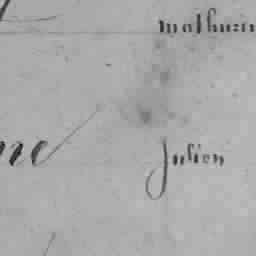 mathurin
ne Julien